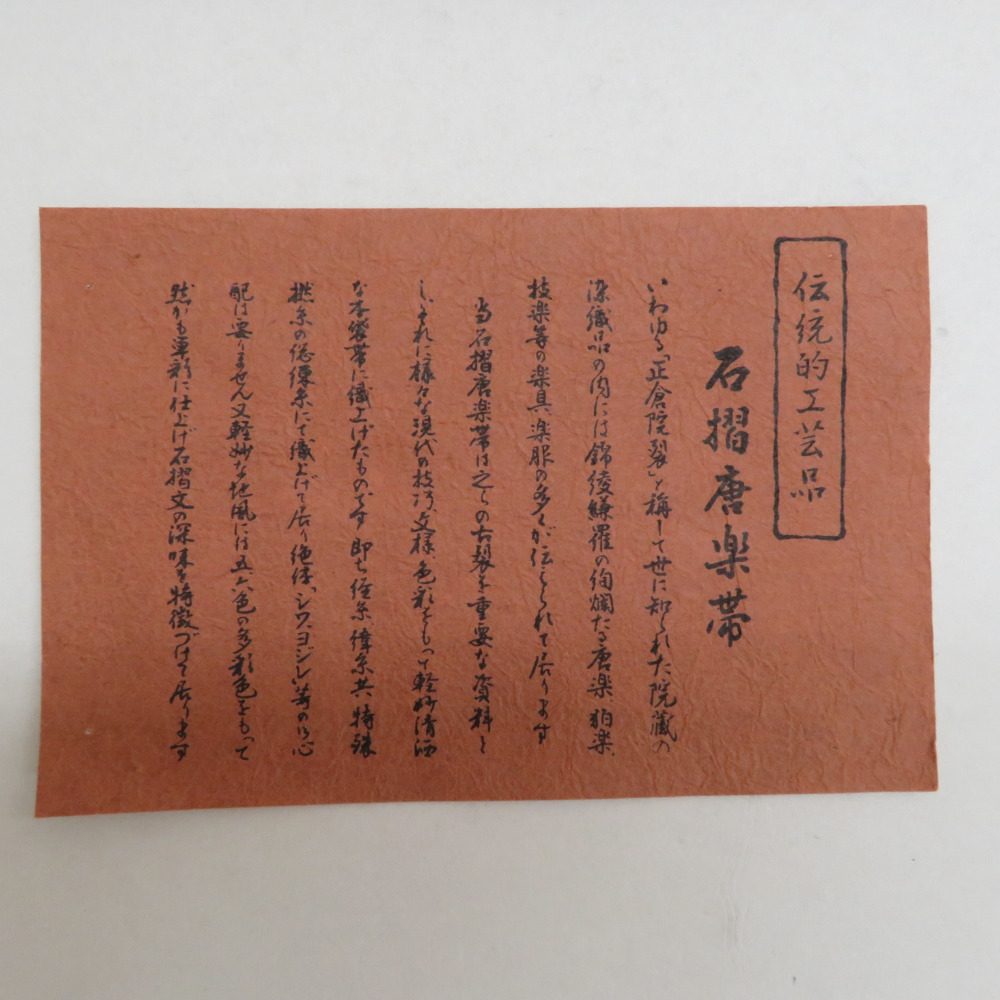 伝統的工芸品
石摺唐楽帯
いわゆる「正倉院裂」と称して世に知られた院蔵の
染織品の内には錦綾纐羅の絢爛たる唐楽、狛楽、
技楽等の楽具、楽服の多くが伝えられて居ります
当石摺唐楽帯は之らの古裂を重要な資料と
し、それに様々な現代の技巧、文様、色彩をもって軽妙清洒
な本袋帯に織上げたものです 即ち経糸緯糸共、特殊
撚糸の総練糸にて織上げて居り絶体、シワ、ヨジレ等の御心
配は要りません又軽妙な地風には五六色の多彩色をもって
然かも単彩に仕上げ石摺文の深味を特徴づけて居ります